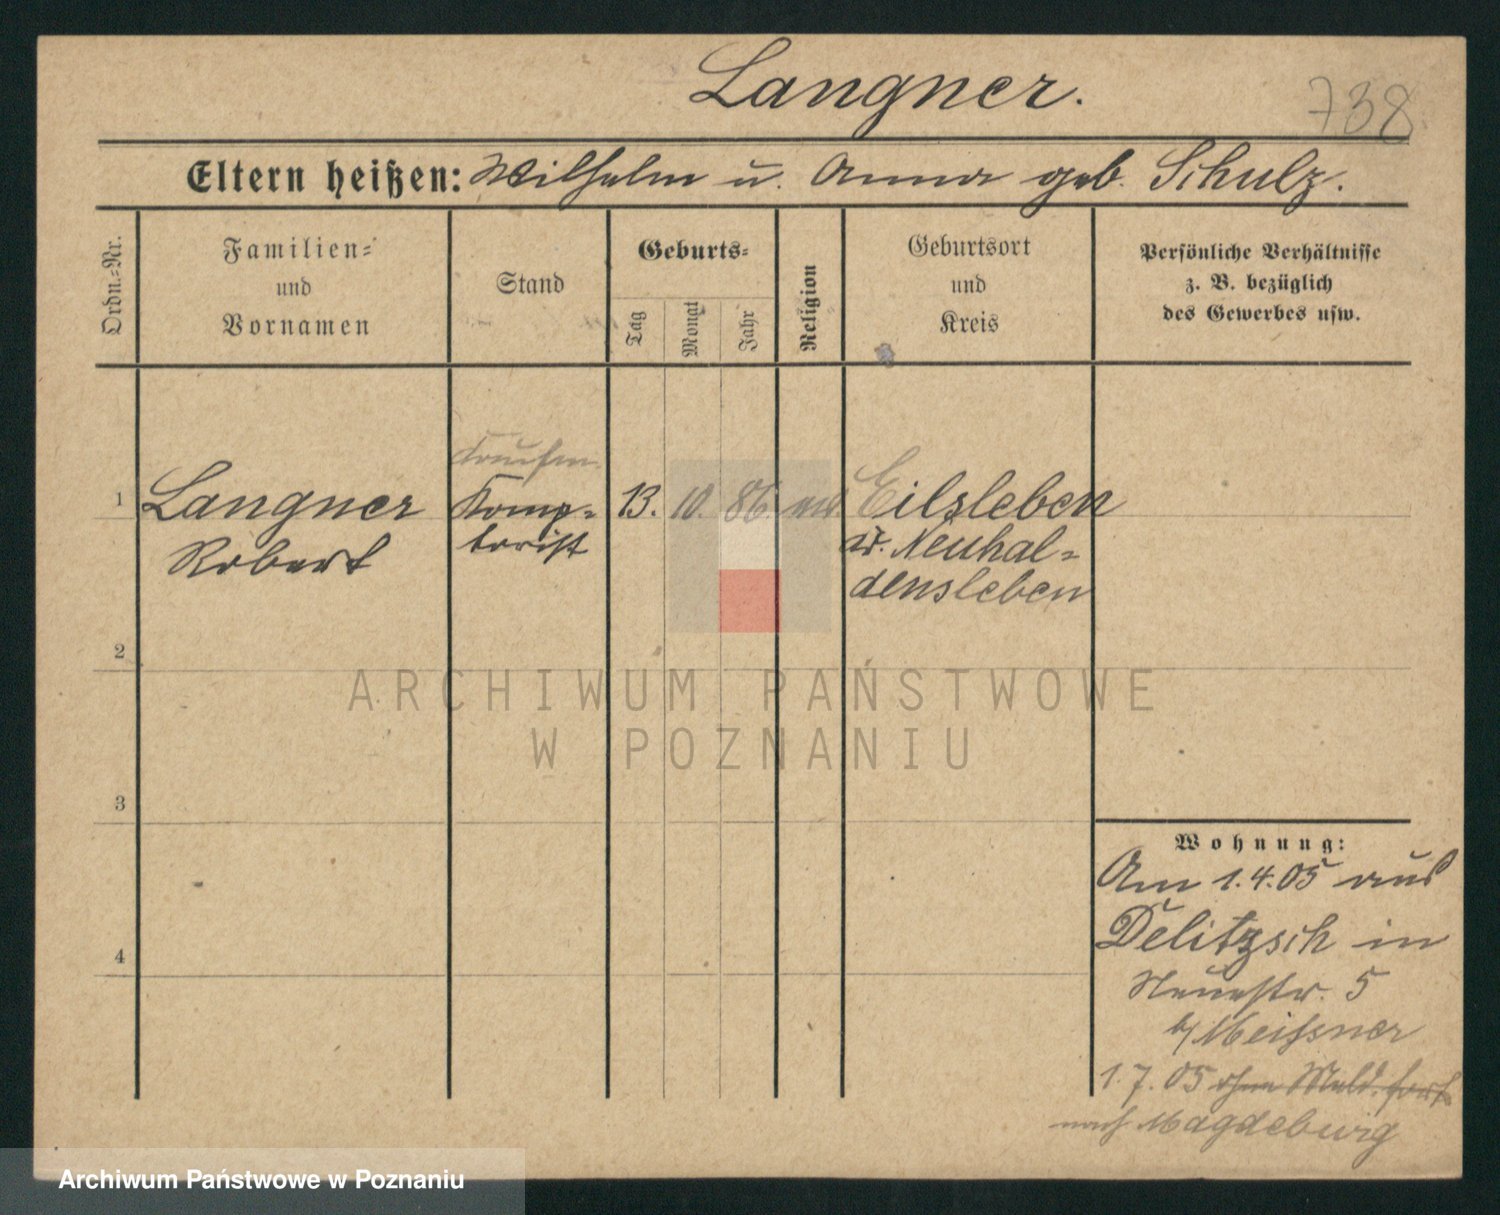 Langner.
738
Eltern heißen: Wilhelm u. Anna geb. Schulz.
Ordn.-Nr.
Familien-
und
Vornamen
Stand
Geburts-
Tag
Monat
Jahr
Religion
Geburtsort
und
Kreis
Persönliche Verhältnisse
z. B. bezüglich
des Gewerbes usw.
1
Langner
Robert
Komp-
torist
13. 10. 86.
Eilsleben
Neuhal-
densleben
2
3
4
Wohnung:
Am 1.4.05 aus
Delitzsch in
Neuestr. 5
b/ Meißner
1.7.05 ohne Meld. fort
nach Magdeburg
ARCHIWUM PAŃSTWOWE
W POZNANIU
Archiwum Państwowe w Poznaniu